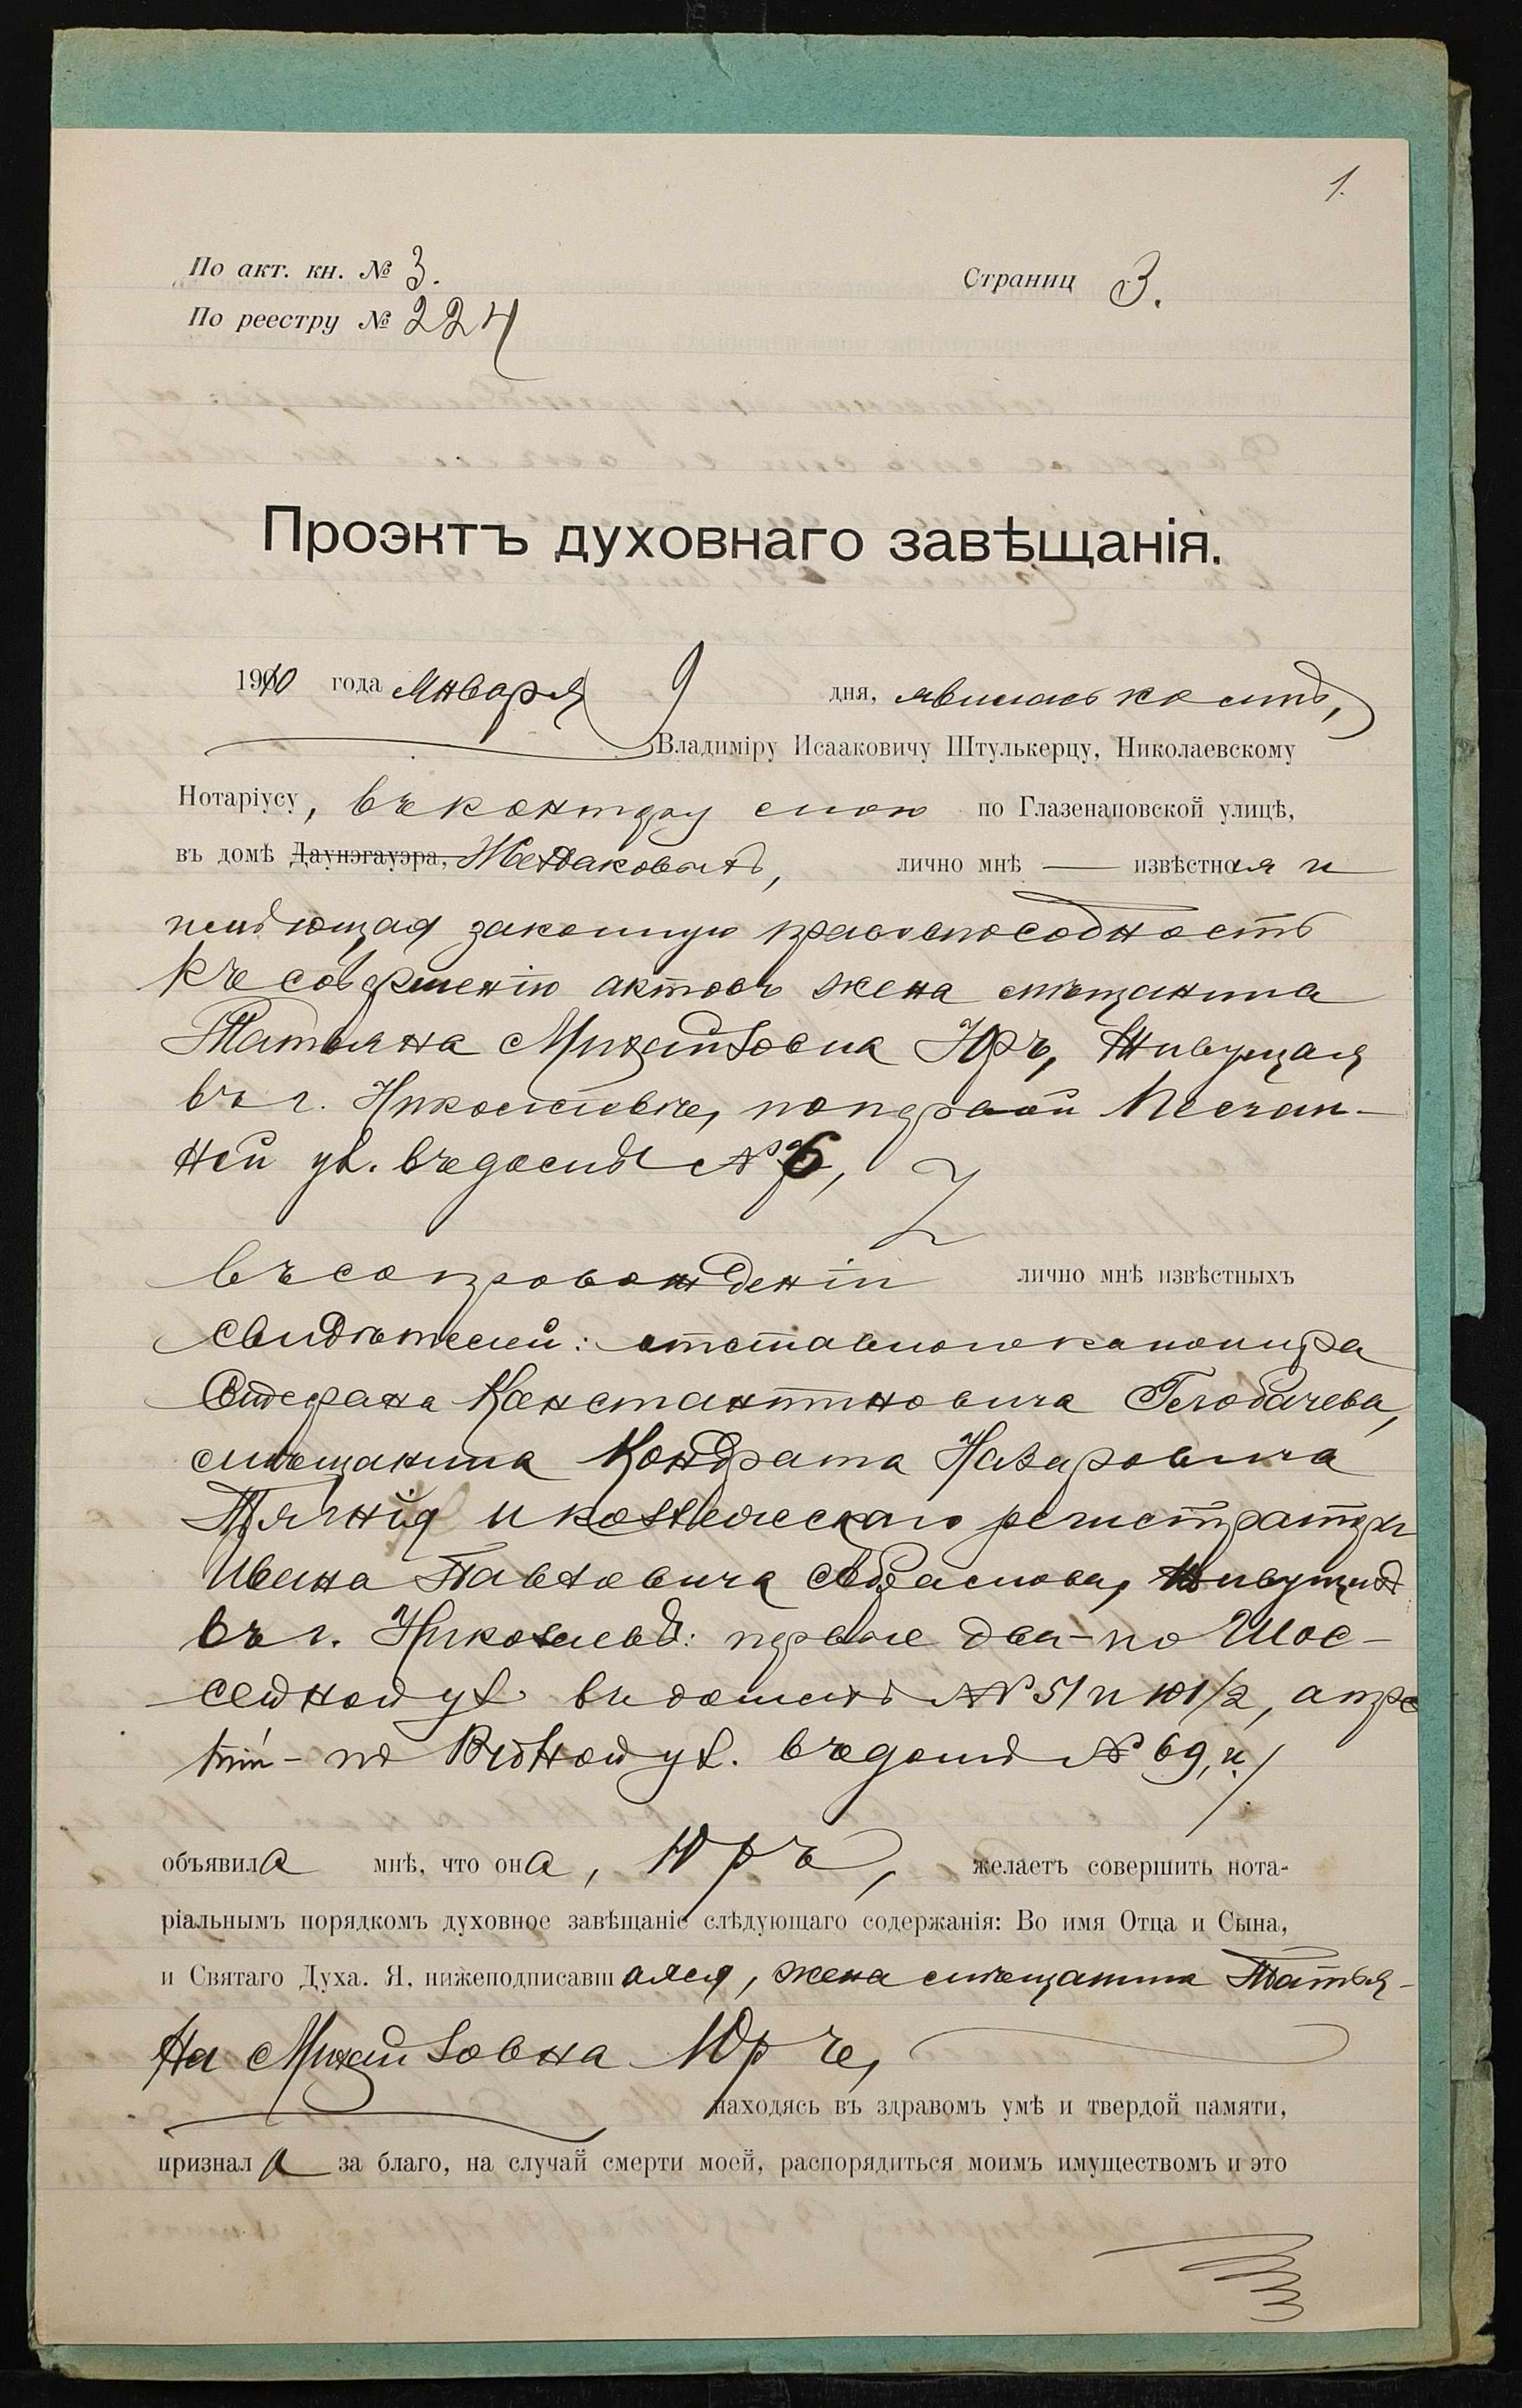 1.
По акт. кн. № 3.
Страниц 3.
По реестру № 224
Проэктъ духовнаго завѣщанія.
1910 года Января 9 дня, явилась ко мнѣ,
Владиміру Исааковичу Штулькерцу, Николаевскому
Нотаріусу, въ контору мою по Глазенаповской улицѣ,
въ домѣ Даунэгауэра, лично мнѣ — извѣстная и
имѣющая законную правоспособность
къ совершенію актовъ жена мѣщанина
Татьяна Михайловна Юръ, живущая
въ г. Николаевѣ, по Песчан-
ной ул. въ домѣ № 6,
въ сопровожденіи лично мнѣ извѣстныхъ
свидѣтелей: отставного канонира
Стефана Константиновича Белобачева,
мѣщанина Кондрата Назаровича
и коллежскаго регистратора
Ивана Павловича Абрасимова, живущихъ
въ г. Николаевѣ: первые два – по Шос-
сейной ул. въ домахъ №№ 51 и 101/2, а тре-
тій – по ул. въ домѣ № 69, и
объявила мнѣ, что она, Юръ, желаетъ совершить нота-
ріальнымъ порядкомъ духовное завѣщаніе слѣдующаго содержанія: Во имя Отца и Сына,
и Святаго Духа. Я, нижеподписавшаяся, жена мѣщанина Татья-
на Михайловна Юръ,
находясь въ здравомъ умѣ и твердой памяти,
признала за благо, на случай смерти моей, распорядиться моимъ имуществомъ и это